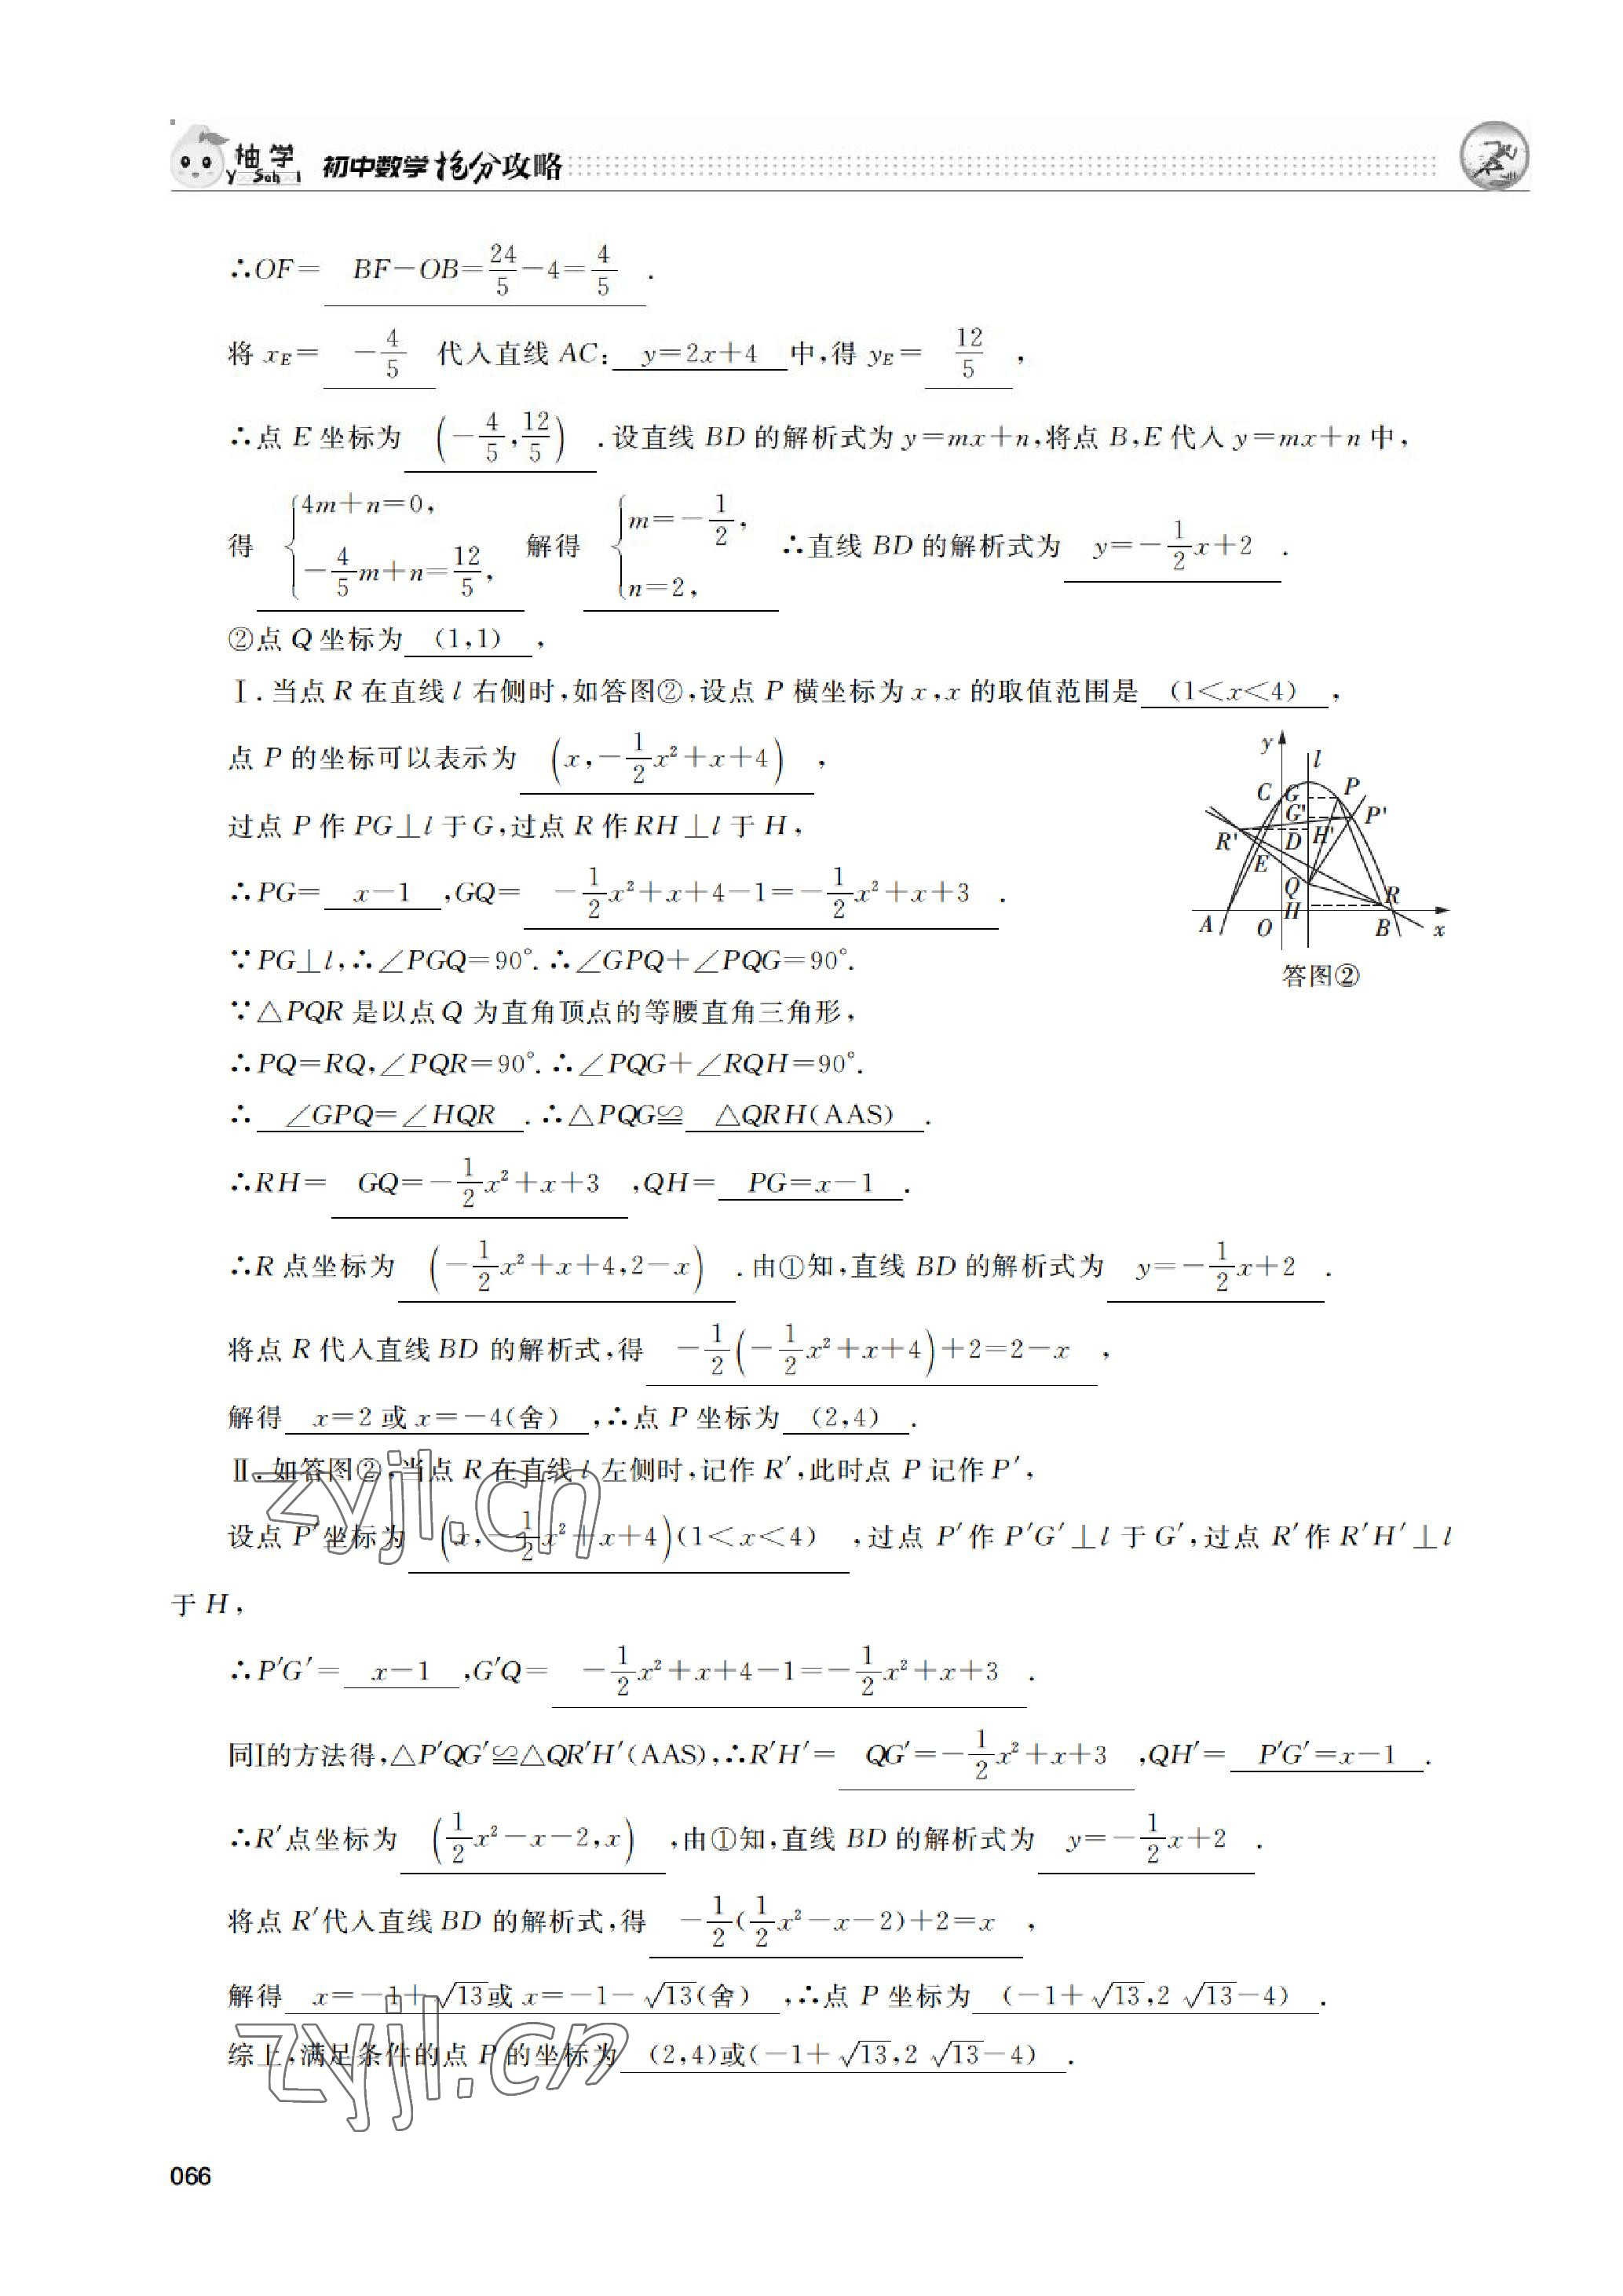 柚学 初中数学抢分攻略
∴OF= BF-OB=24/5-4=4/5 .
将 x_E= -4/5 代入直线 AC: y=2x+4 中,得 y_E= 12/5 ,
∴点 E 坐标为 (-4/5,12/5) .设直线 BD 的解析式为 y=mx+n,将点 B,E 代入 y=mx+n 中,
得 {4m+n=0, -4/5m+n=12/5, 解得 {m=-1/2, n=2, ∴直线 BD 的解析式为 y=-1/2x+2 .
②点 Q 坐标为 (1,1) ,
Ⅰ.当点 R 在直线 l 右侧时,如答图②,设点 P 横坐标为 x,x 的取值范围是 (1<x<4) ,
点 P 的坐标可以表示为 (x,-1/2x²+x+4) ,
过点 P 作 PG⊥l 于 G,过点 R 作 RH⊥l 于 H,
∴PG= x-1 ,GQ= -1/2x²+x+4-1=-1/2x²+x+3 .
∵PG⊥l,∴∠PGQ=90°.∴∠GPQ+∠PQG=90°.
∵△PQR 是以点 Q 为直角顶点的等腰直角三角形,
∴PQ=RQ,∠PQR=90°.∴∠PQG+∠RQH=90°.
∴ ∠GPQ=∠HQR .∴△PQG≌ △QRH(AAS) .
∴RH= GQ=-1/2x²+x+3 ,QH= PG=x-1 .
∴R 点坐标为 (-1/2x²+x+4,2-x) .由①知,直线 BD 的解析式为 y=-1/2x+2 .
将点 R 代入直线 BD 的解析式,得 -1/2(-1/2x²+x+4)+2=2-x ,
解得 x=2 或 x=-4(舍) ,∴点 P 坐标为 (2,4) .
Ⅱ.如答图②,当点 R 在直线 l 左侧时,记作 R′,此时点 P 记作 P′,
设点 P′坐标为 (x,-1/2x²+x+4)(1<x<4) ,过点 P′作 P′G′⊥l 于 G′,过点 R′作 R′H′⊥l
于 H,
∴P′G′= x-1 ,G′Q= -1/2x²+x+4-1=-1/2x²+x+3 .
同Ⅰ的方法得,△P′QG′≌△QR′H′(AAS),∴R′H′= QG′=-1/2x²+x+3 ,QH′= P′G′=x-1 .
∴R′点坐标为 (1/2x²-x-2,x) ,由①知,直线 BD 的解析式为 y=-1/2x+2 .
将点 R′代入直线 BD 的解析式,得 -1/2(1/2x²-x-2)+2=x ,
解得 x=-1+√13或 x=-1-√13(舍) ,∴点 P 坐标为 (-1+√13,2√13-4) .
综上,满足条件的点 P 的坐标为 (2,4)或(-1+√13,2√13-4) .
y l
C G P
G' P'
R' D H'
E
Q R
A O H B x
答图②
zyjl.cn
zyjl.cn
066